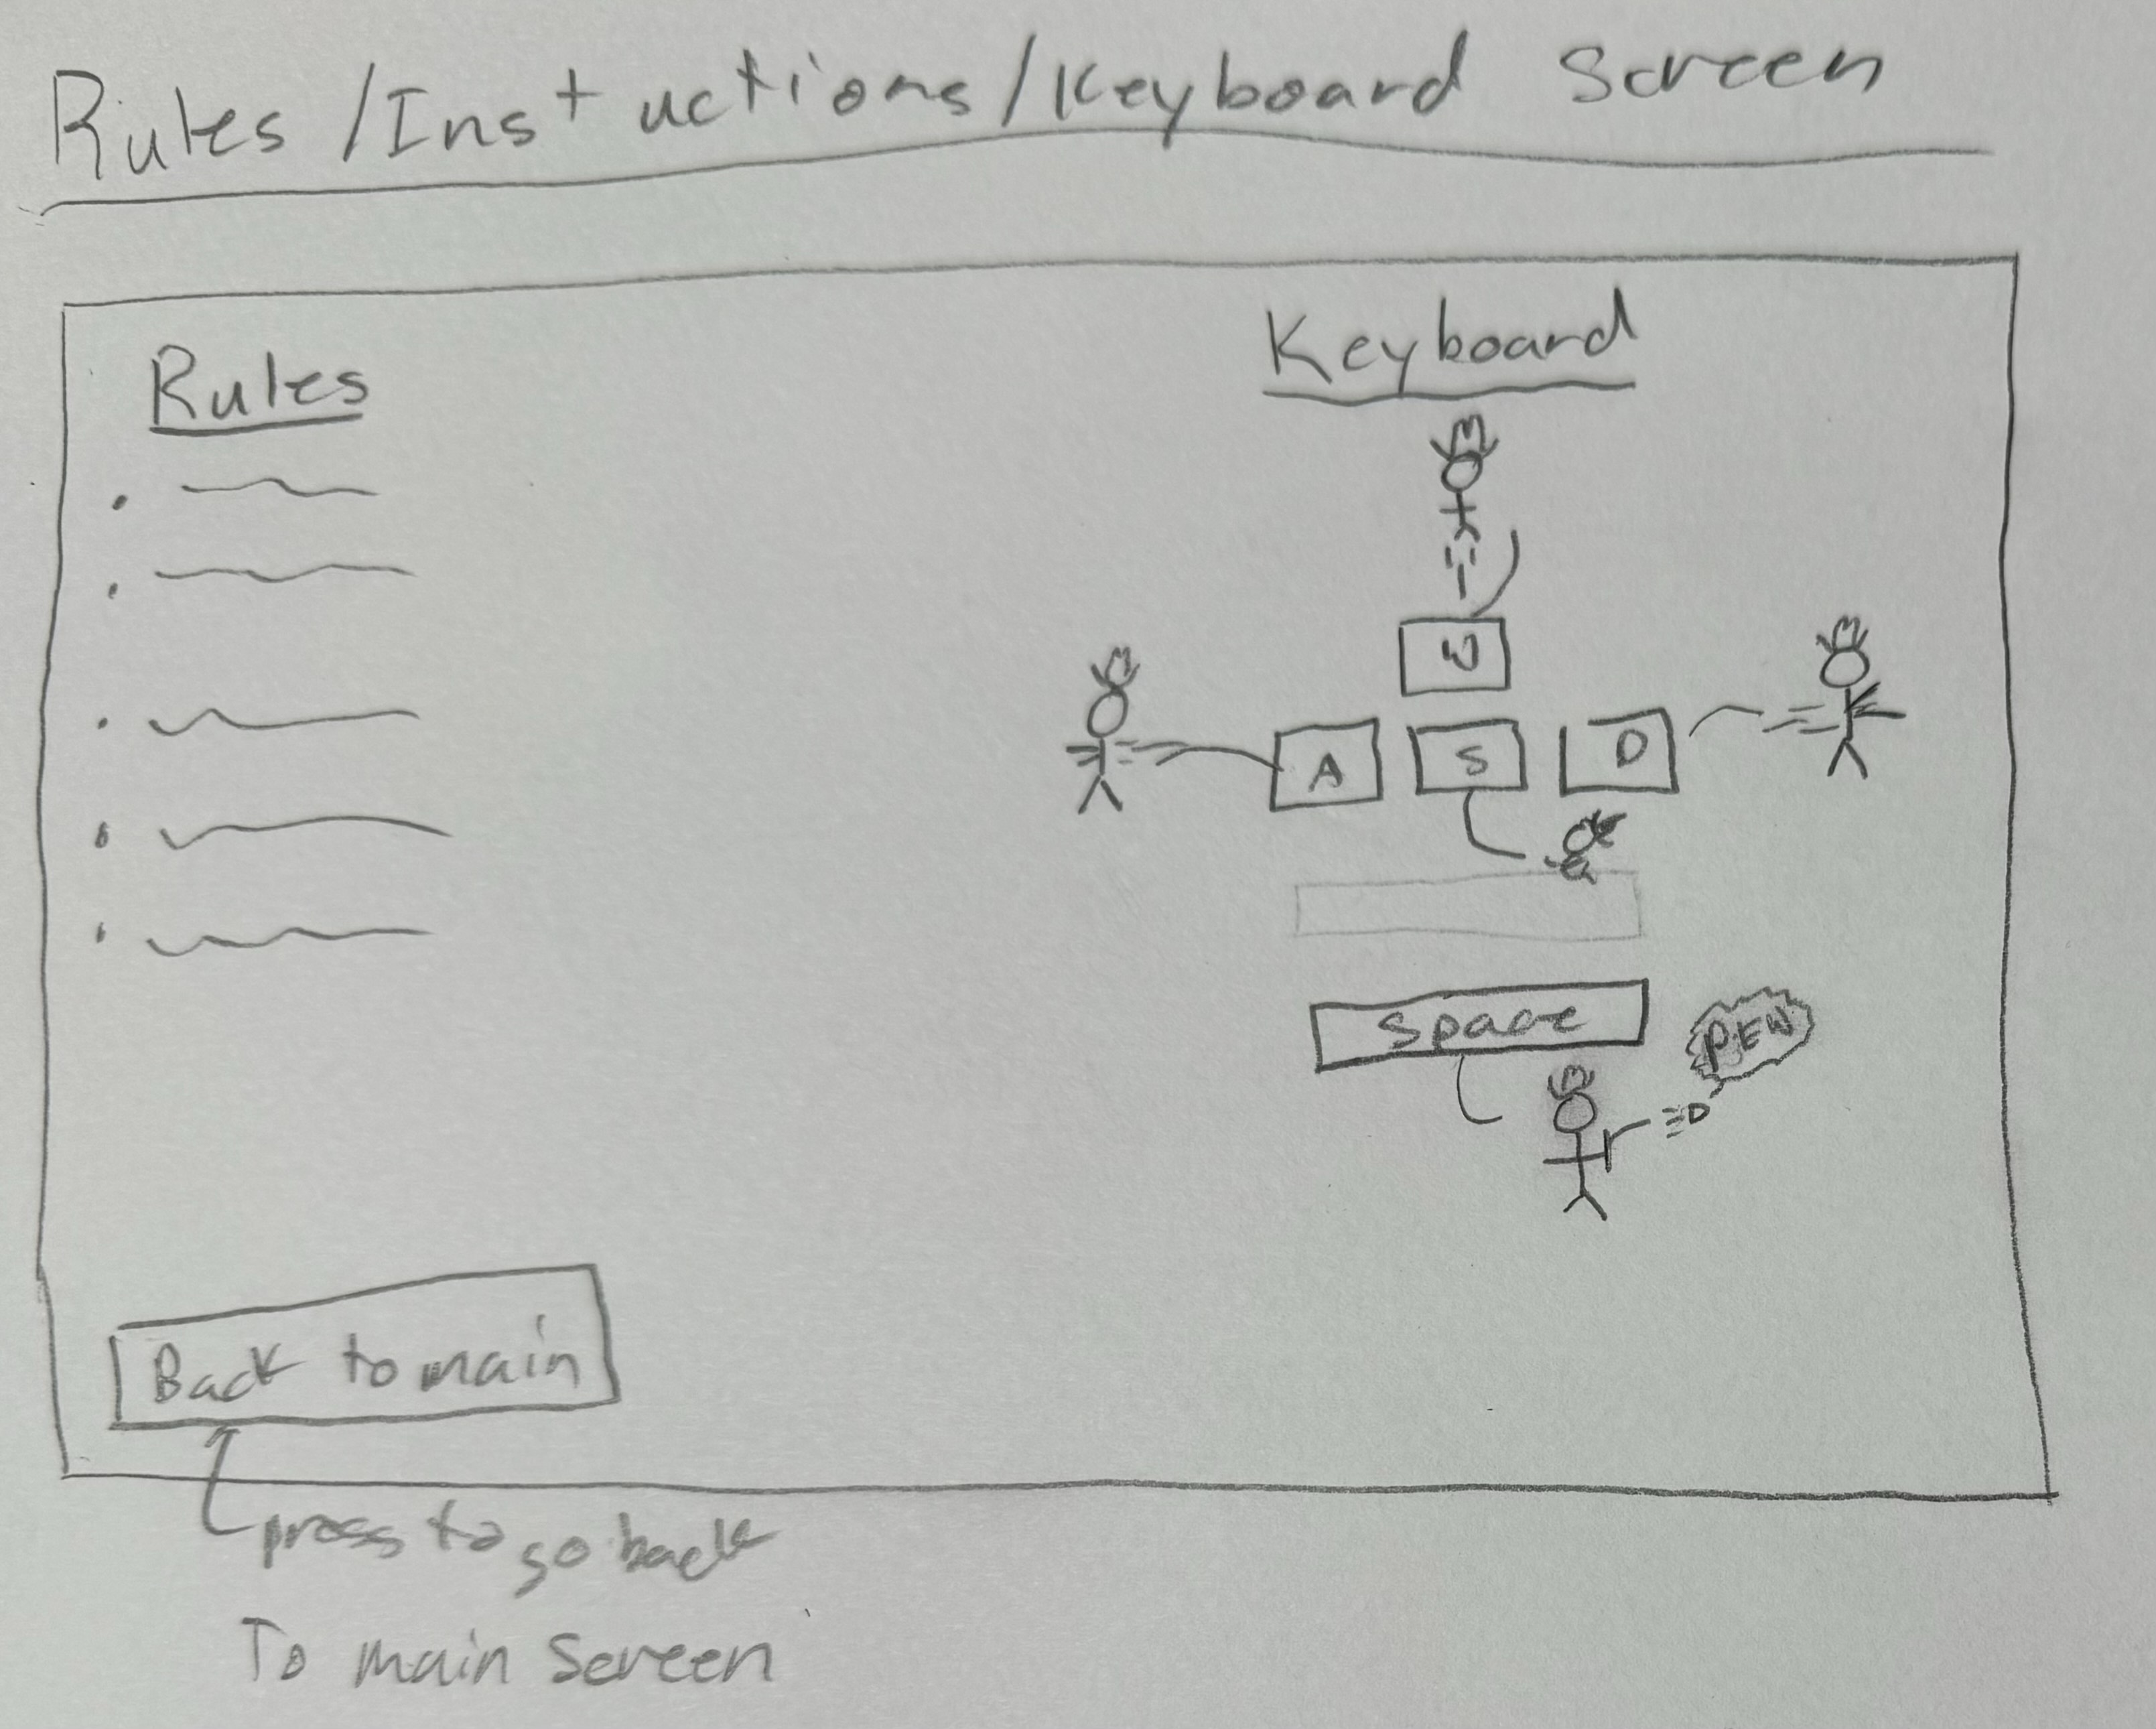 Rules /Inst uctions/Keyboard Screen
Keyboard
Rules
W
A S D
Space
PEW
Back to main
press to go back
To main screen